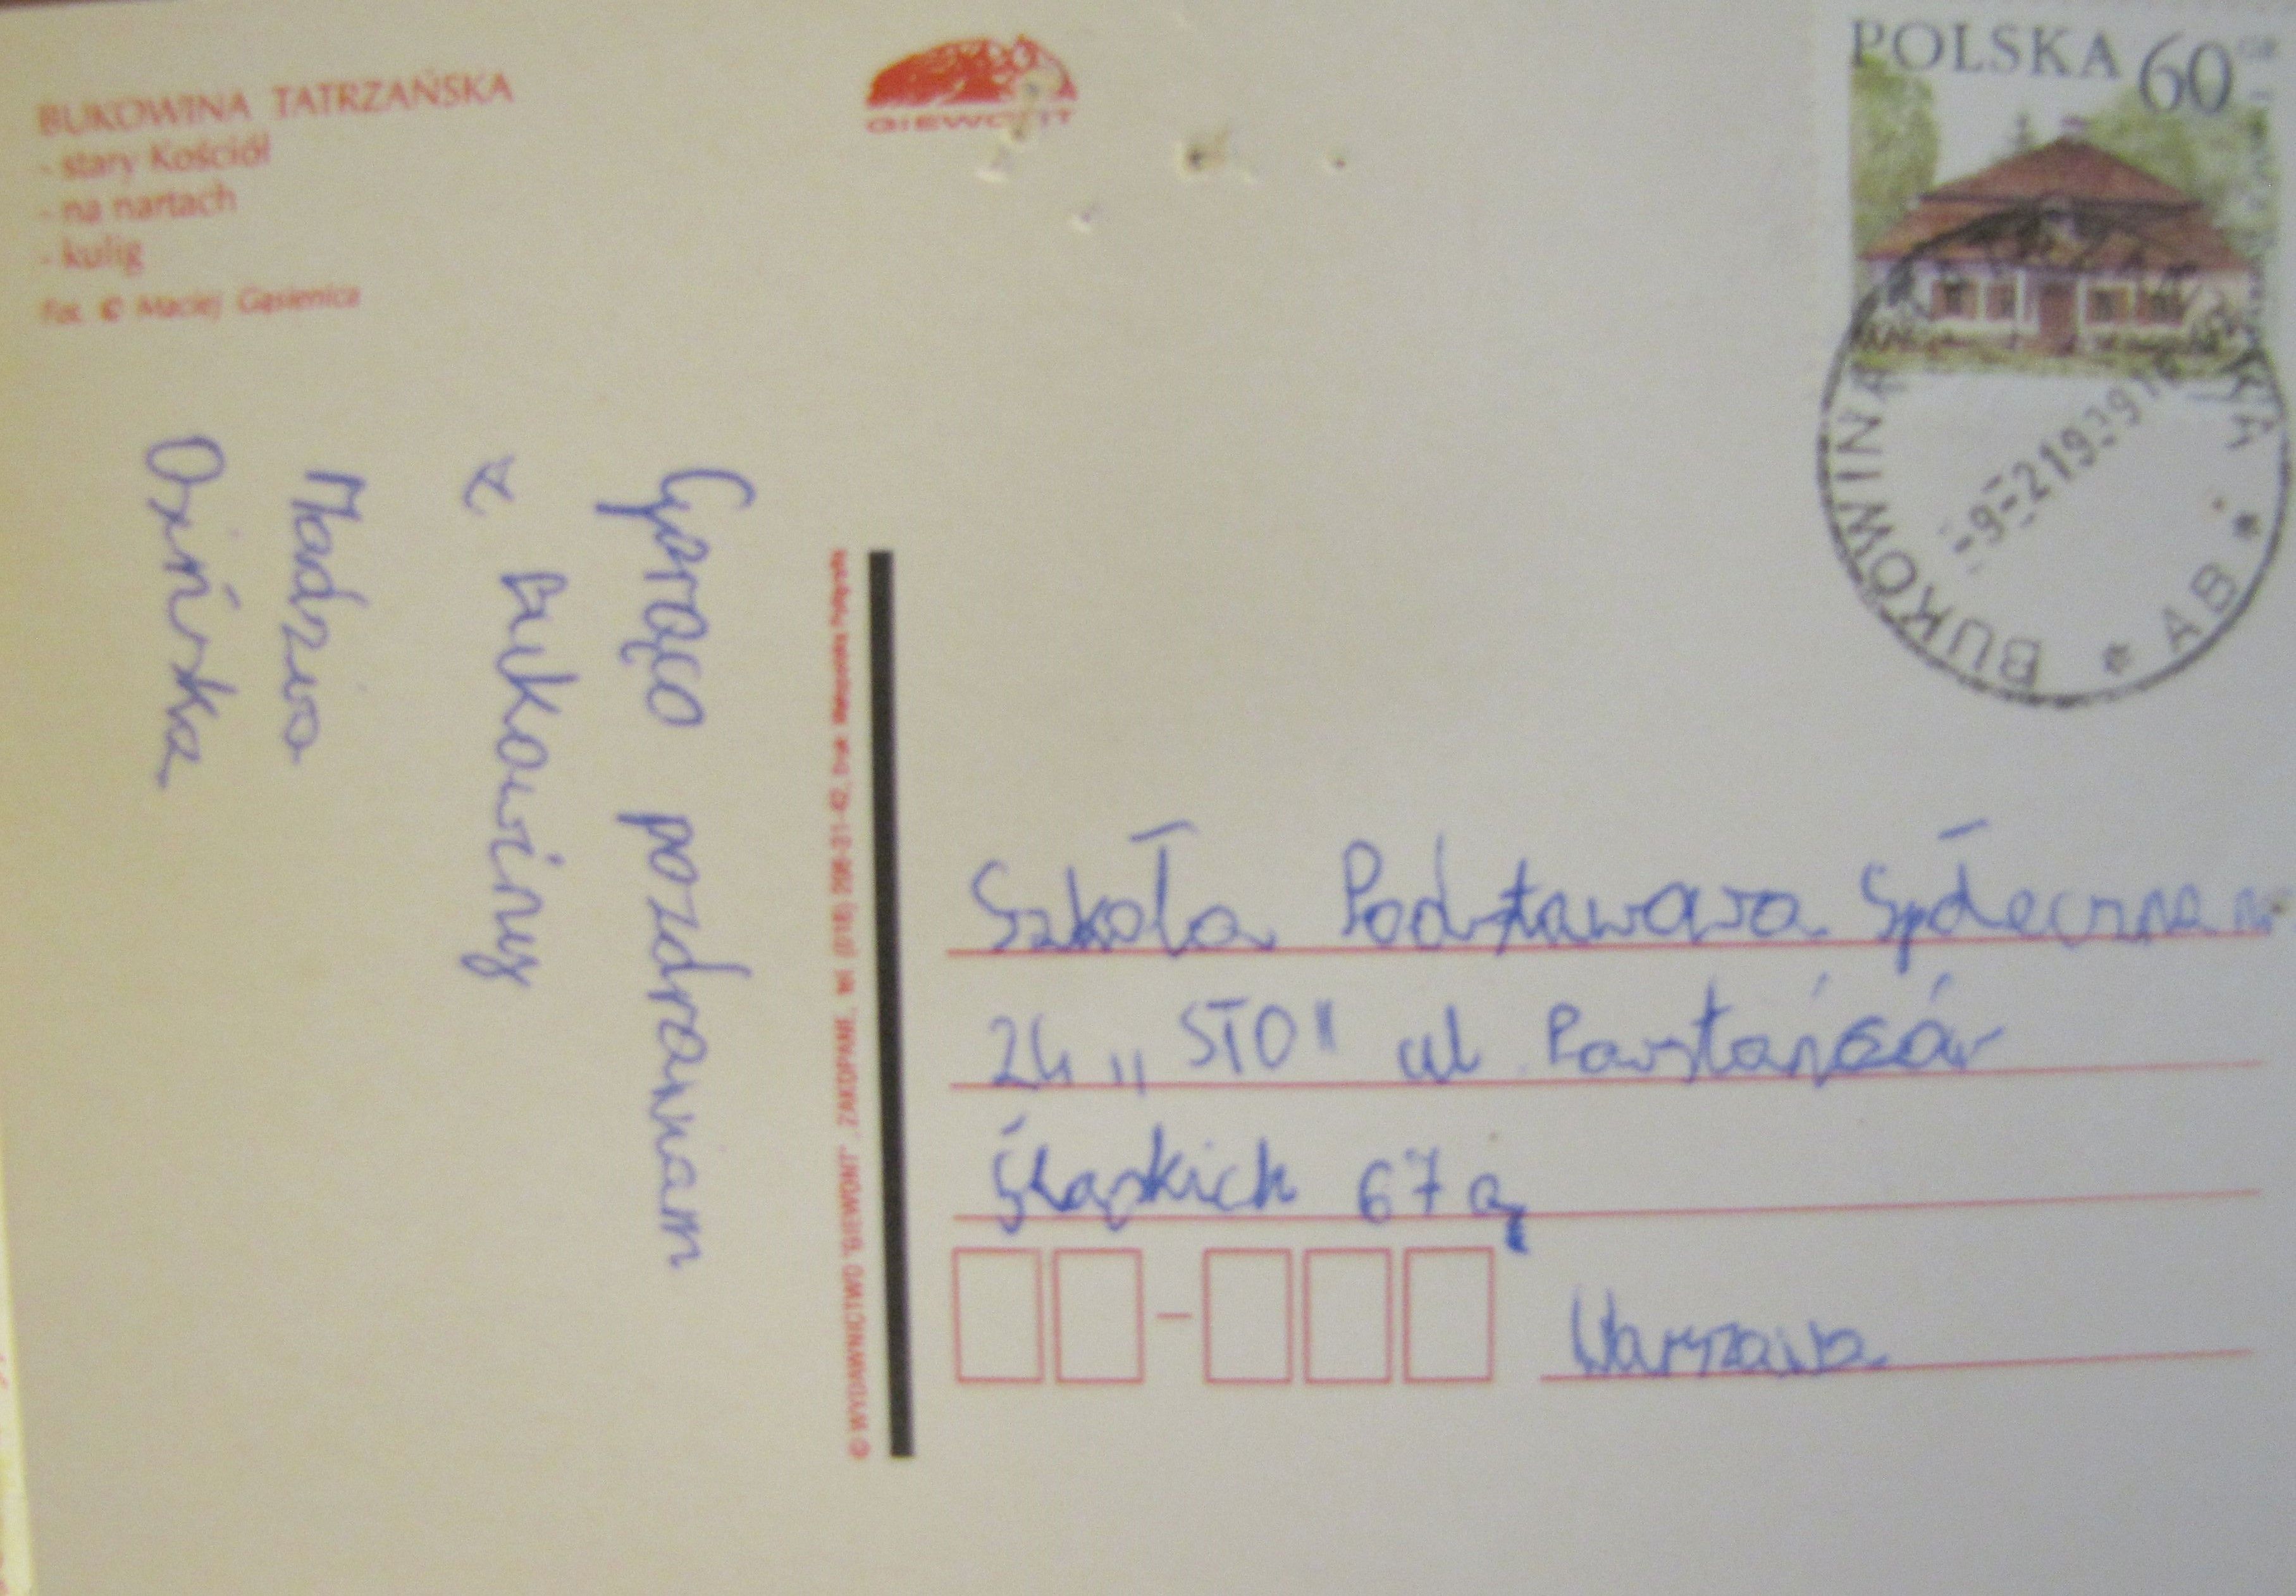 BUKOWINA TATRZAŃSKA
- stary Kościół
- na nartach
- kulig
Fot. © Maciej Gąsienica
GIEWONT
POLSKA 60 GR
BUKOWINA
AB
Gorąco pozdrawiam
z Bukowiny
Madzia
© WYDAWNICTWO "GIEWONT", ZAKOPANE, tel. (018) 206-31-42, Druk
Szkoła Podstawowa Społeczna nr
24 „STO" ul Powstańców
Śląskich 67 a
Warszawa